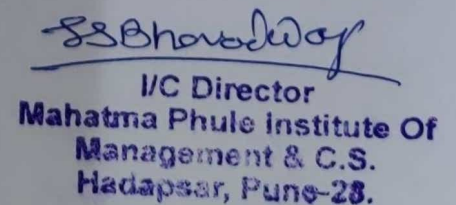 SSBharadwaj
I/C Director
Mahatma Phule Institute Of
Management & C.S.
Hadapsar, Pune-28.